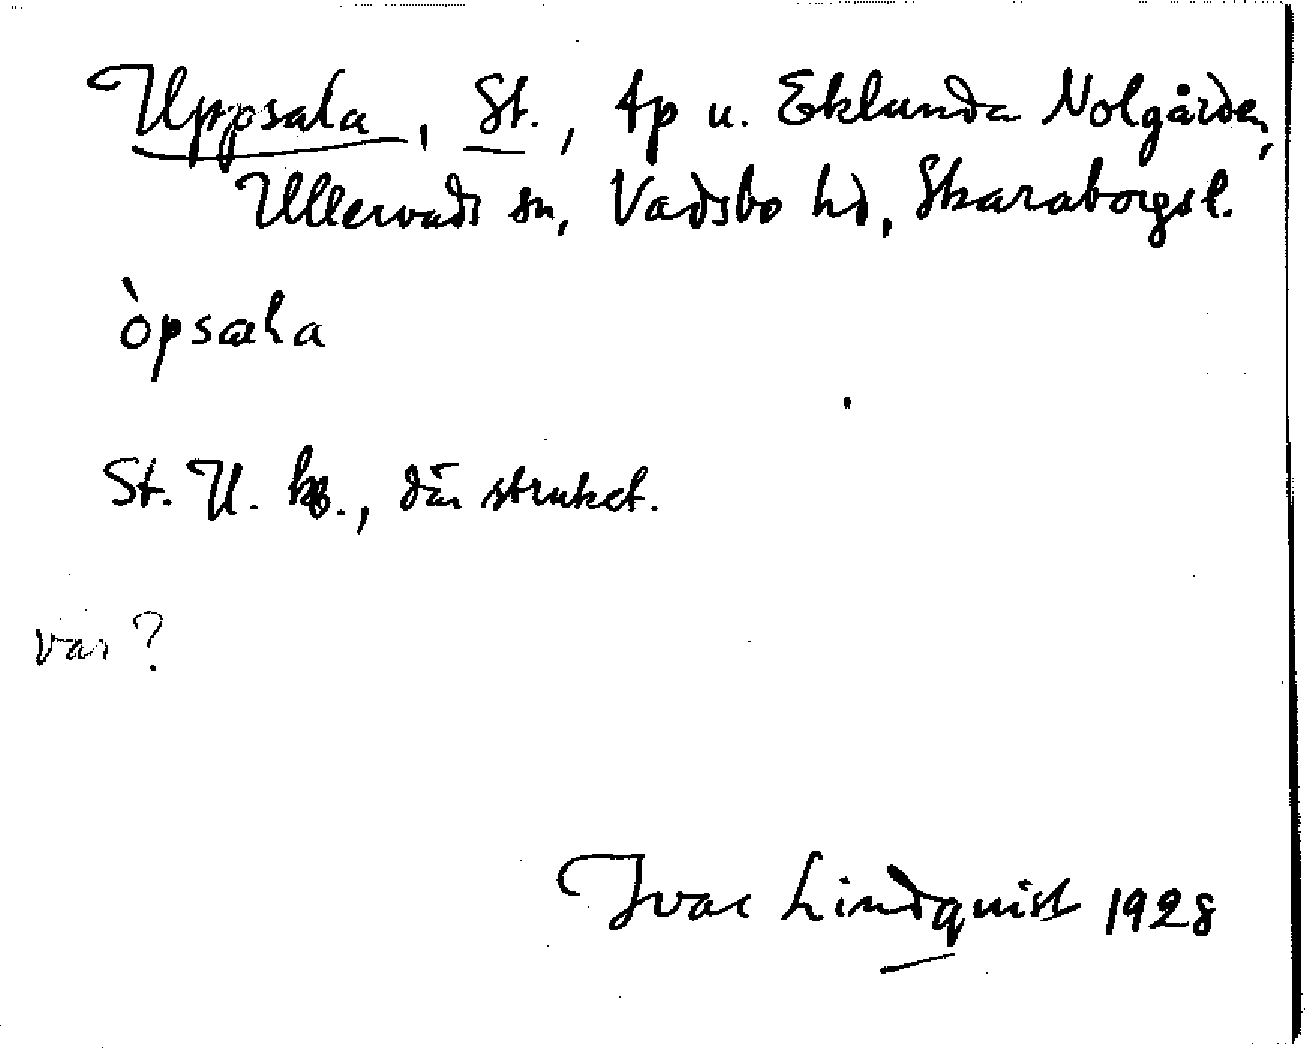 Uppsala, St., tp u. Eklunda Nolgården,
Ullervads sn, Vadsbo hd, Skaraborgsl.
òpsala
St. U. kb., där struket.
var?
Ivar Lindquist 1928